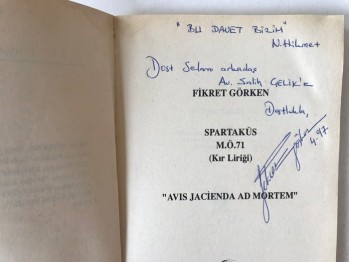 "BU DAVET BİZİM"
N. Hikmet
Dost Selamı arkadaş
Av. Salih ÇELİK'e
FİKRET GÖRKEN
Dostlukla,
SPARTAKÜS
M.Ö.71
(Kır Liriği)
4.97
"AVIS JACIENDA AD MORTEM"